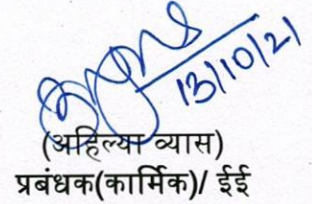 13/10/21
(अहिल्या व्यास)
प्रबंधक(कार्मिक)/ ईई